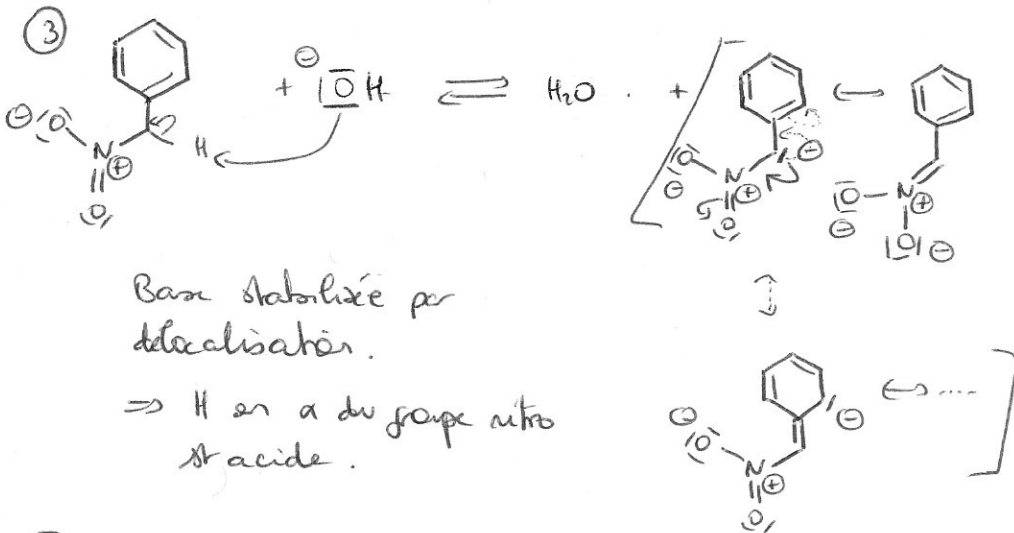 ③
⊖ |O N ⊕ O H + ⊖ |OH ⇌ H₂O . + [ ⊖ O N ⊕ O ⊖ ↔ ⊖ O N ⊕ |O| ⊖
Base stabilisée par
délocalisation.
⇒ H en α du groupe nitro
st acide.
⊖ O N ⊕ O ⊖ ↔ ..... ]